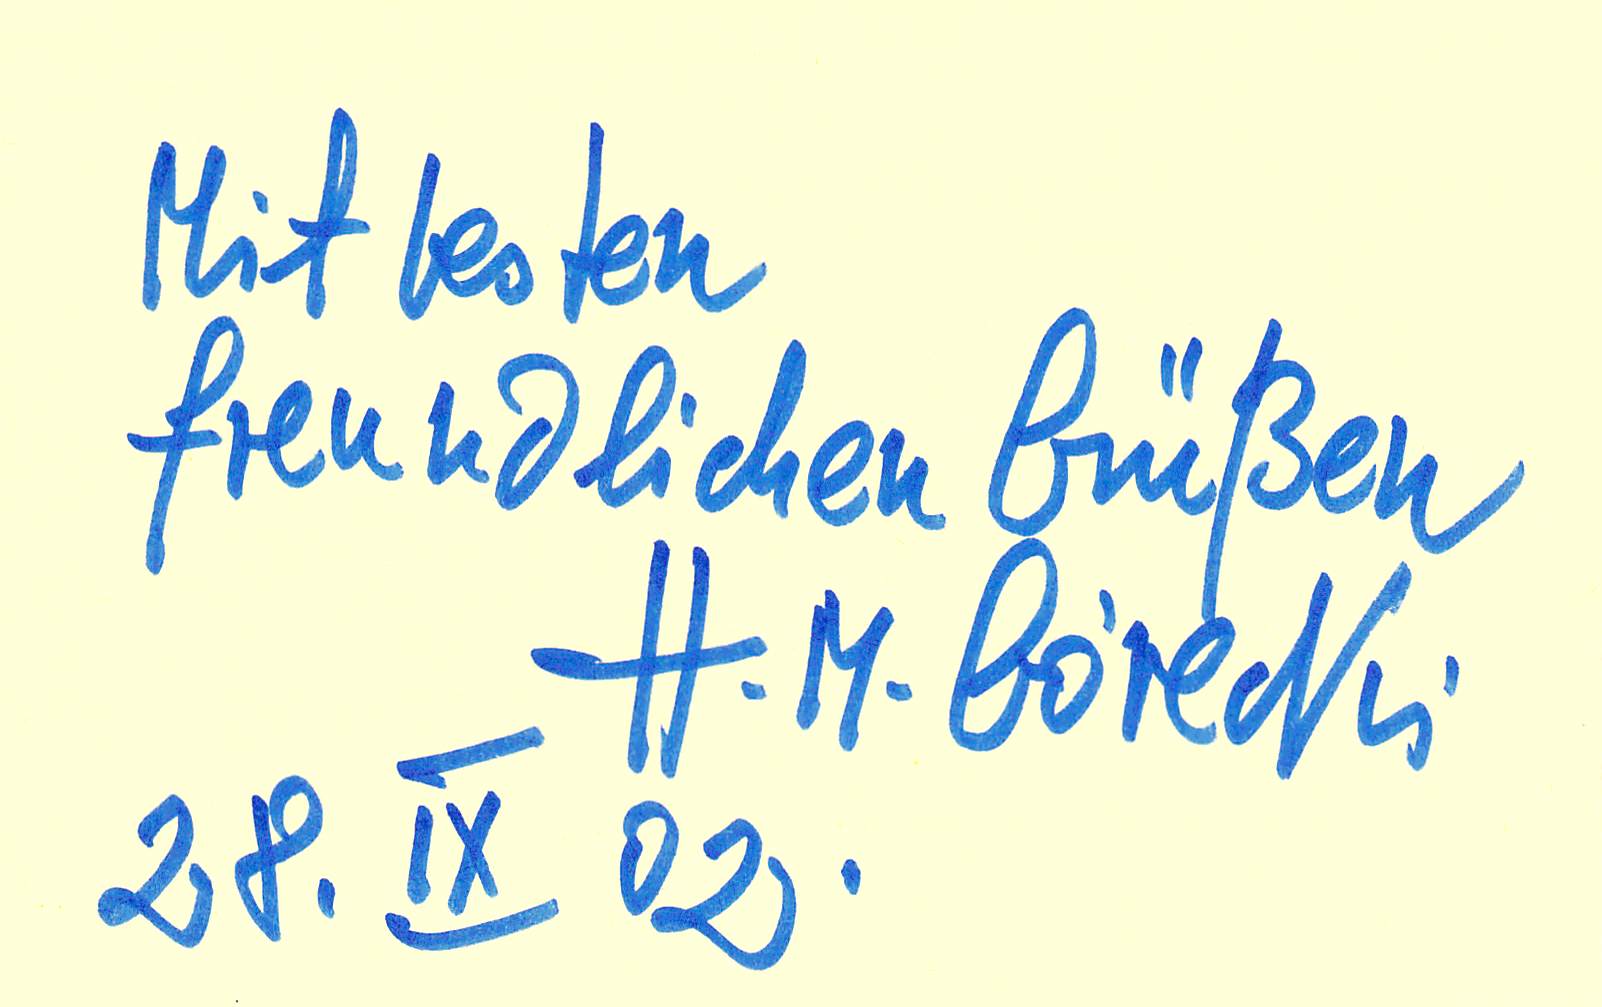 Mit besten
freundlichen Grüßen
H. M. Górecki
28. IX 02.